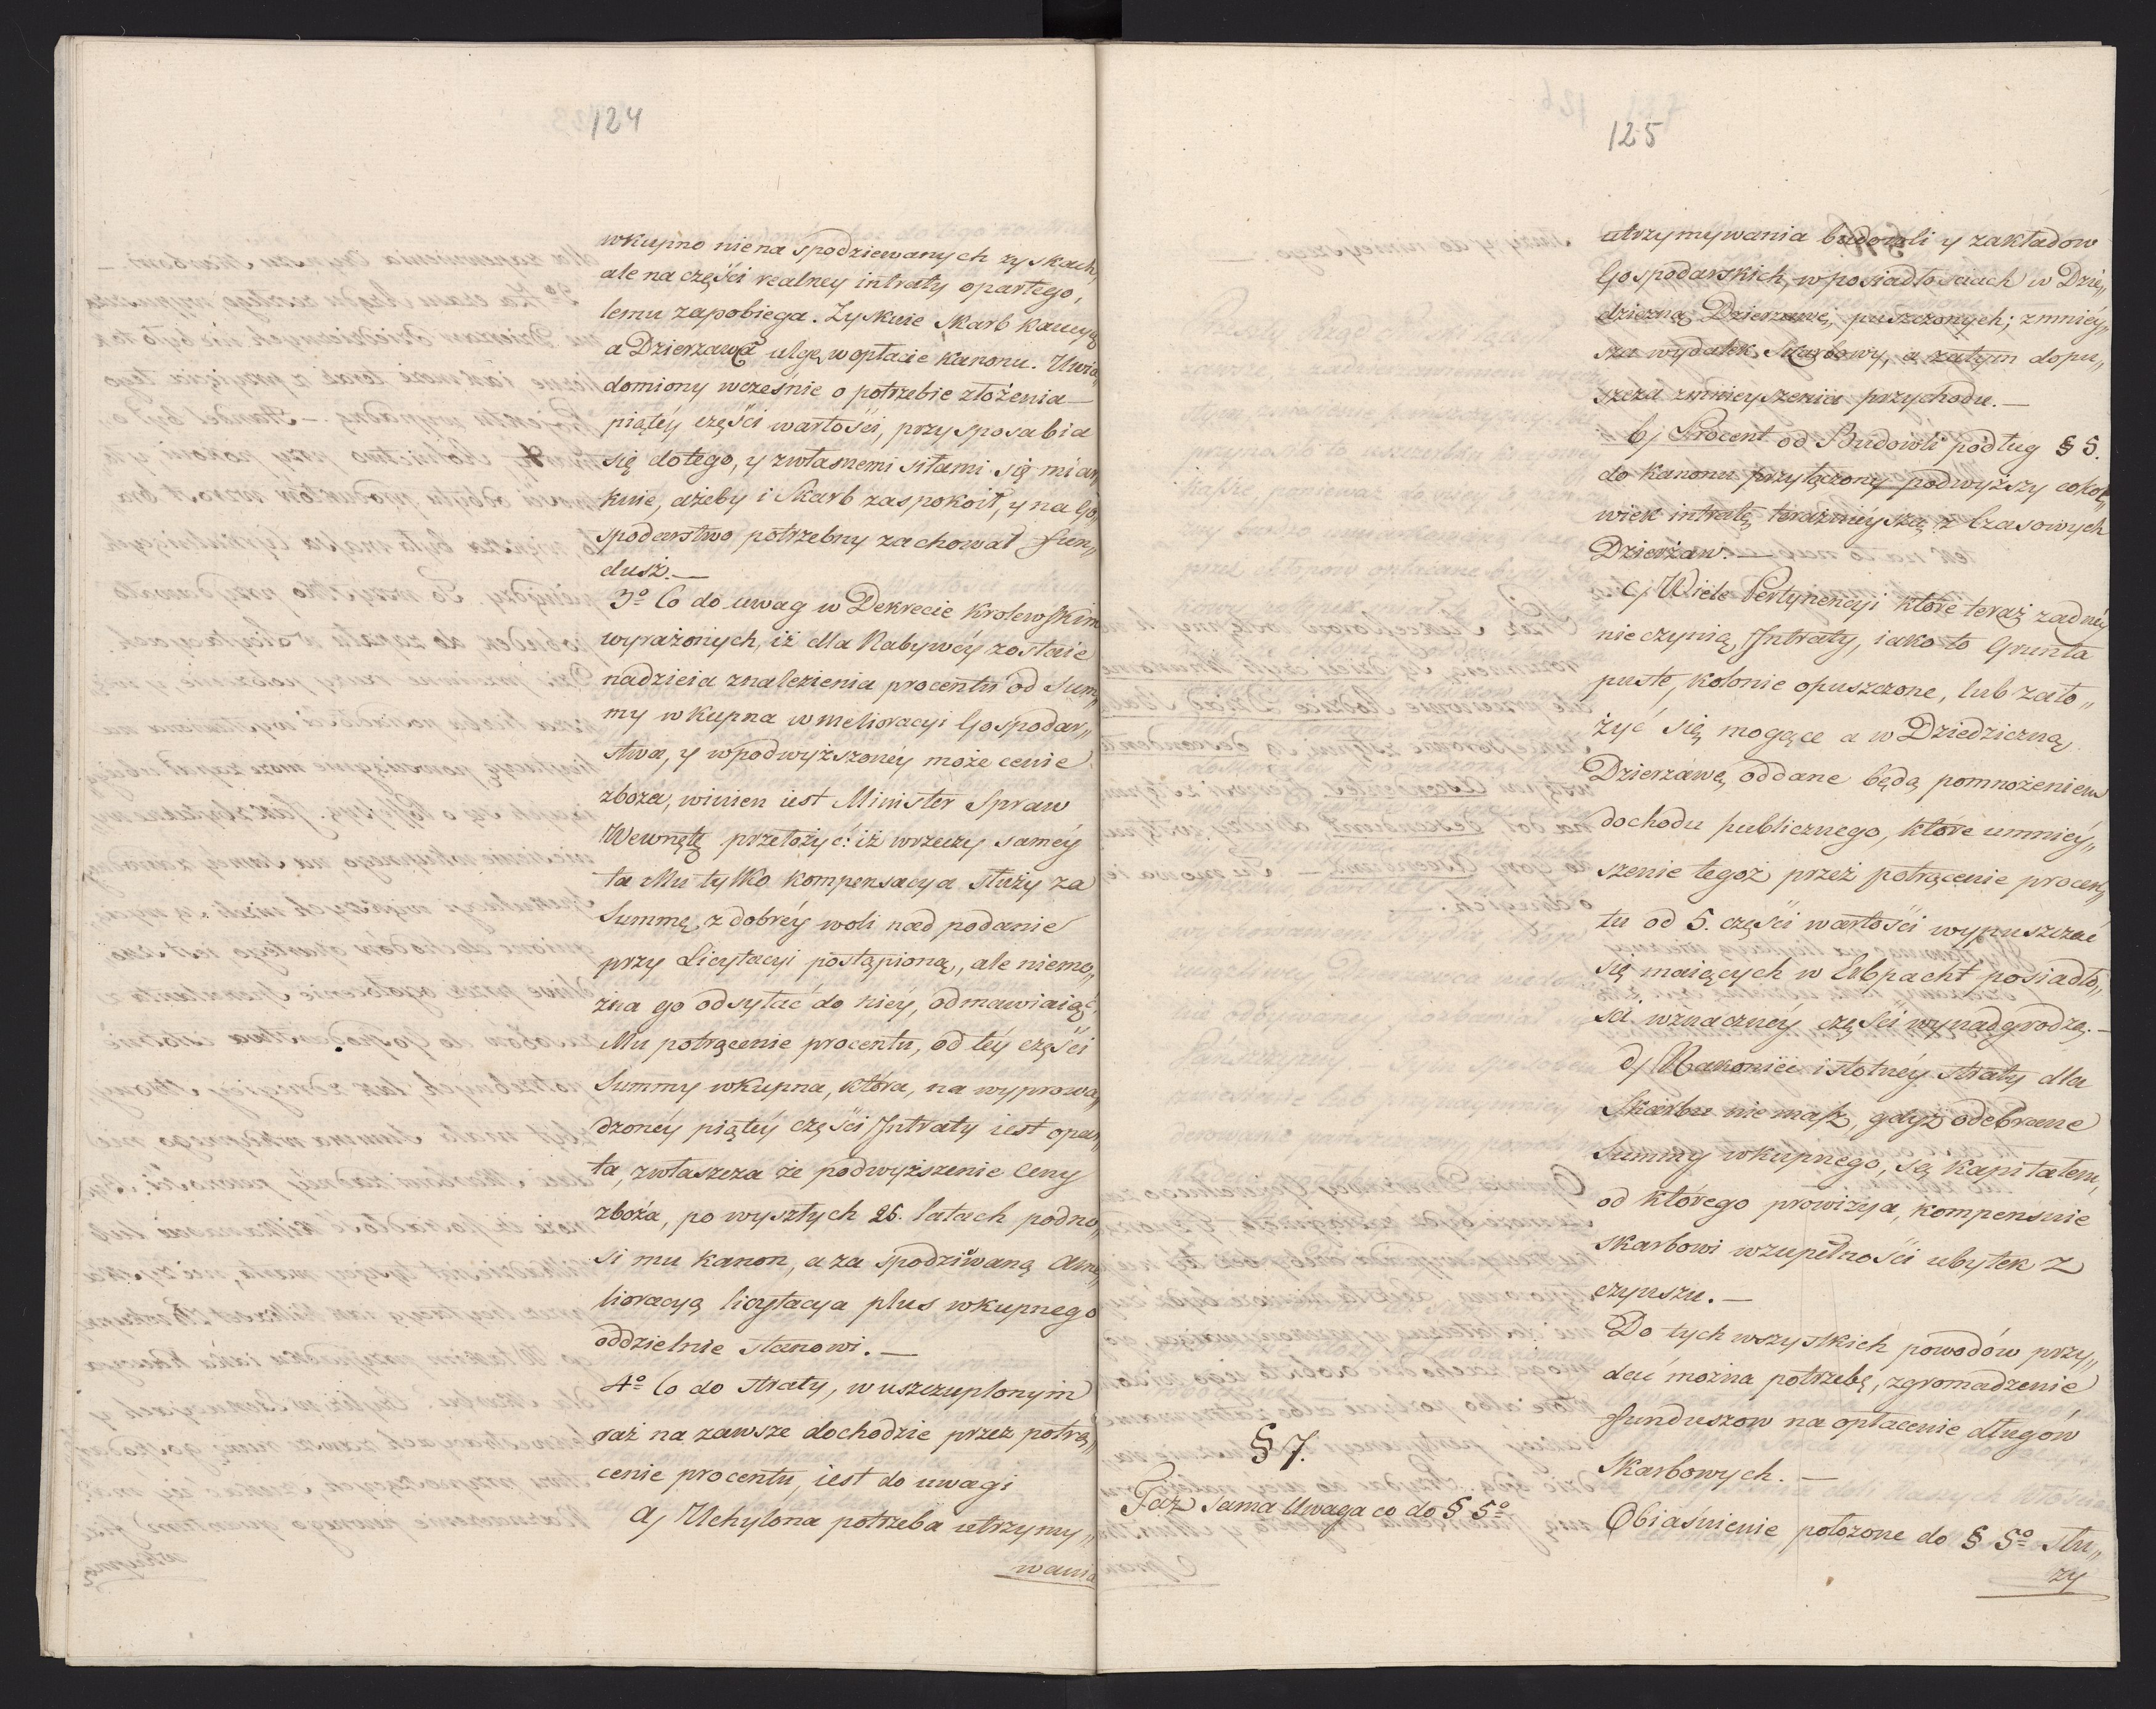 124
wkupno nie na spodziewanych zyskach,
ale na części realney intraty opartego,
temu zapobiega. Zyskuie Skarb kaucyą
a Dzierzawca ulgę w opłacie kanonu. Uwia„
domiony wcześnie o potrzebie złożenia
piątéy części wartości, przysposabia
się do tego, y własnemi siłami się miar„
kuie, ażeby i Skarb zaspokoił, y na Go„
spodarstwo potrzebny zachował fun„
dusz. —
3o Co do uwag w Dekrecie Krolewskim
wyrażonych, iż dla Nabywcy zostaie
nadzieia znalezienia procentu od Sum„
my wkupna w melioracyi Gospodar„
stwa, y w podwyższonéy może cenie
zboża, winien iest Minister Spraw
Wewnętz przełożyć: iż w rzeczy saméy
ta Mu tylko kompensacya służy za
Summę, z dobréy woli nad podanie
przy Licytacyi postąpioną, ale niemo„
żna go odsyłać do niéy, odmawiaiąc
Mu potrącenie procentu, od téy części
Summy wkupna, która, na wyprowa„
dzonéy piątéy części Intraty iest opar„
ta, zwłaszcza że podwyższenie Ceny
zboża, po wyszłych 26. latach podno„
si mu kanon, a za spodziwaną ame„
lioracyą licytacya plus wkupnego
oddzielnie stanowi. —
4o Co do straty, w uszczuplonym
raz na zawsze dochodzie przez potrą„
cenie procentu, iest do uwagi
a) Uchylona potrzeba utrzymy„
wania
125
utrzymywania budowli y zakładow
Gospodarskich, w posiadłosciach w Dzie„
dziczną Dzierzawę, puszczonych; zmniéy„
sza wydatek Skarbowy, a zatym dopu„
szcza zmnieyszenia przychodu. —
b) Procent od Budowli podług § 5.
do kanonu przyłączony podwyższy cokol„
wiek intratę teraznieyszą z Czasowych
Dzierżaw. —
c) Wiele Pertynencyi które teraz zadnéy
nie czynią Intraty, iako to Grunta
puste, kolonie opuszczone, lub zało„
żyć się mogące a w Dziedziczną
Dzierzawę oddane będą pomnożeniem
dochodu publicznego, które umniéy„
szenie tegoż przez potrącenie procen„
tu od 5. części wartości wypuszczać
się maiących w Erbpacht posiadło„
ści w znacznéy części wynadgrodzą. —
d) Nakoniec istotnéy straty dla
Skarbu nie masz, gdyż odebrane
Summy wkupnego, są kapitałem,
od którego prowizya, kompensuie
skarbowi w zupełności ubytek z
czynszu. —
Do tych wszystkich powodów przy„
dać można potrzebę, zgromadzenie
funduszow na opłacenie długów
Skarbowych. —
§ 7.
Taż sama Uwaga co do § 5o
Obiaśnienie położone do § 5o słu„
zy